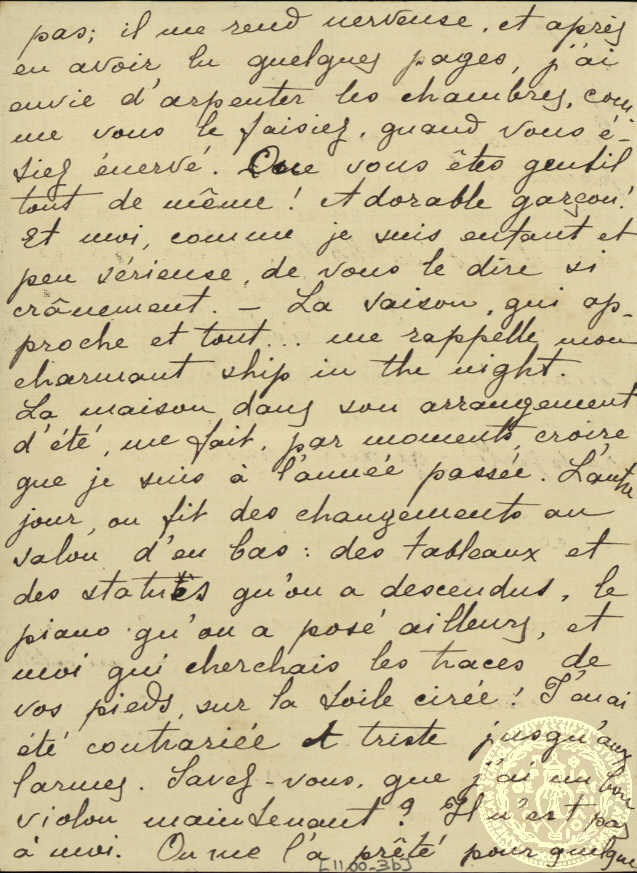 pas; il me rend nerveuse, et après
en avoir lu quelques pages, j'ai
envie d'arpenter les chambres, com
me vous le faisiez, quand vous é-
tiez énervé. Que vous êtes gentil
tout de même! Adorable garçon!
Et moi, comme je suis enfant et
peu sérieuse, de vous le dire si
crânement. – La saison, qui ap-
proche et tout... me rappelle mon
charmant ship in the night.
La maison dans son arrangement
d'été, me fait, par moments, croire
que je suis à l'année passée. L'autre
jour, on fit des changements au
salon d'en bas: des tableaux et
des statues qu'on a descendus, le
piano qu'on a posé ailleurs, et
moi qui cherchais les traces de
vos pieds, sur la toile cirée! J'en ai
été contrariée et triste jusqu'aux
larmes. Savez-vous, que j'ai un bon
violon maintenant? Il n'est pas
à moi. On me l'a prêté pour quelque
[1100-3b]